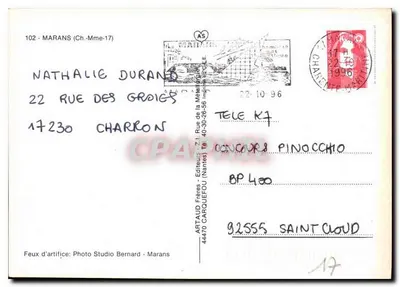 102 - MARANS (Ch.-Mme-17)
NATHALIE DURAND
22 RUE DES GROIES
17230 CHARRON
Feux d'artifice: Photo Studio Bernard - Marans
ARTAUD Frères - Editeurs
44470 CARQUEFOU (Nantes) Tél. 40-30-26-56
22-10-96
1996
TELE K7
CONCOURS PINOCCHIO
BP 400
92555 SAINT CLOUD
17